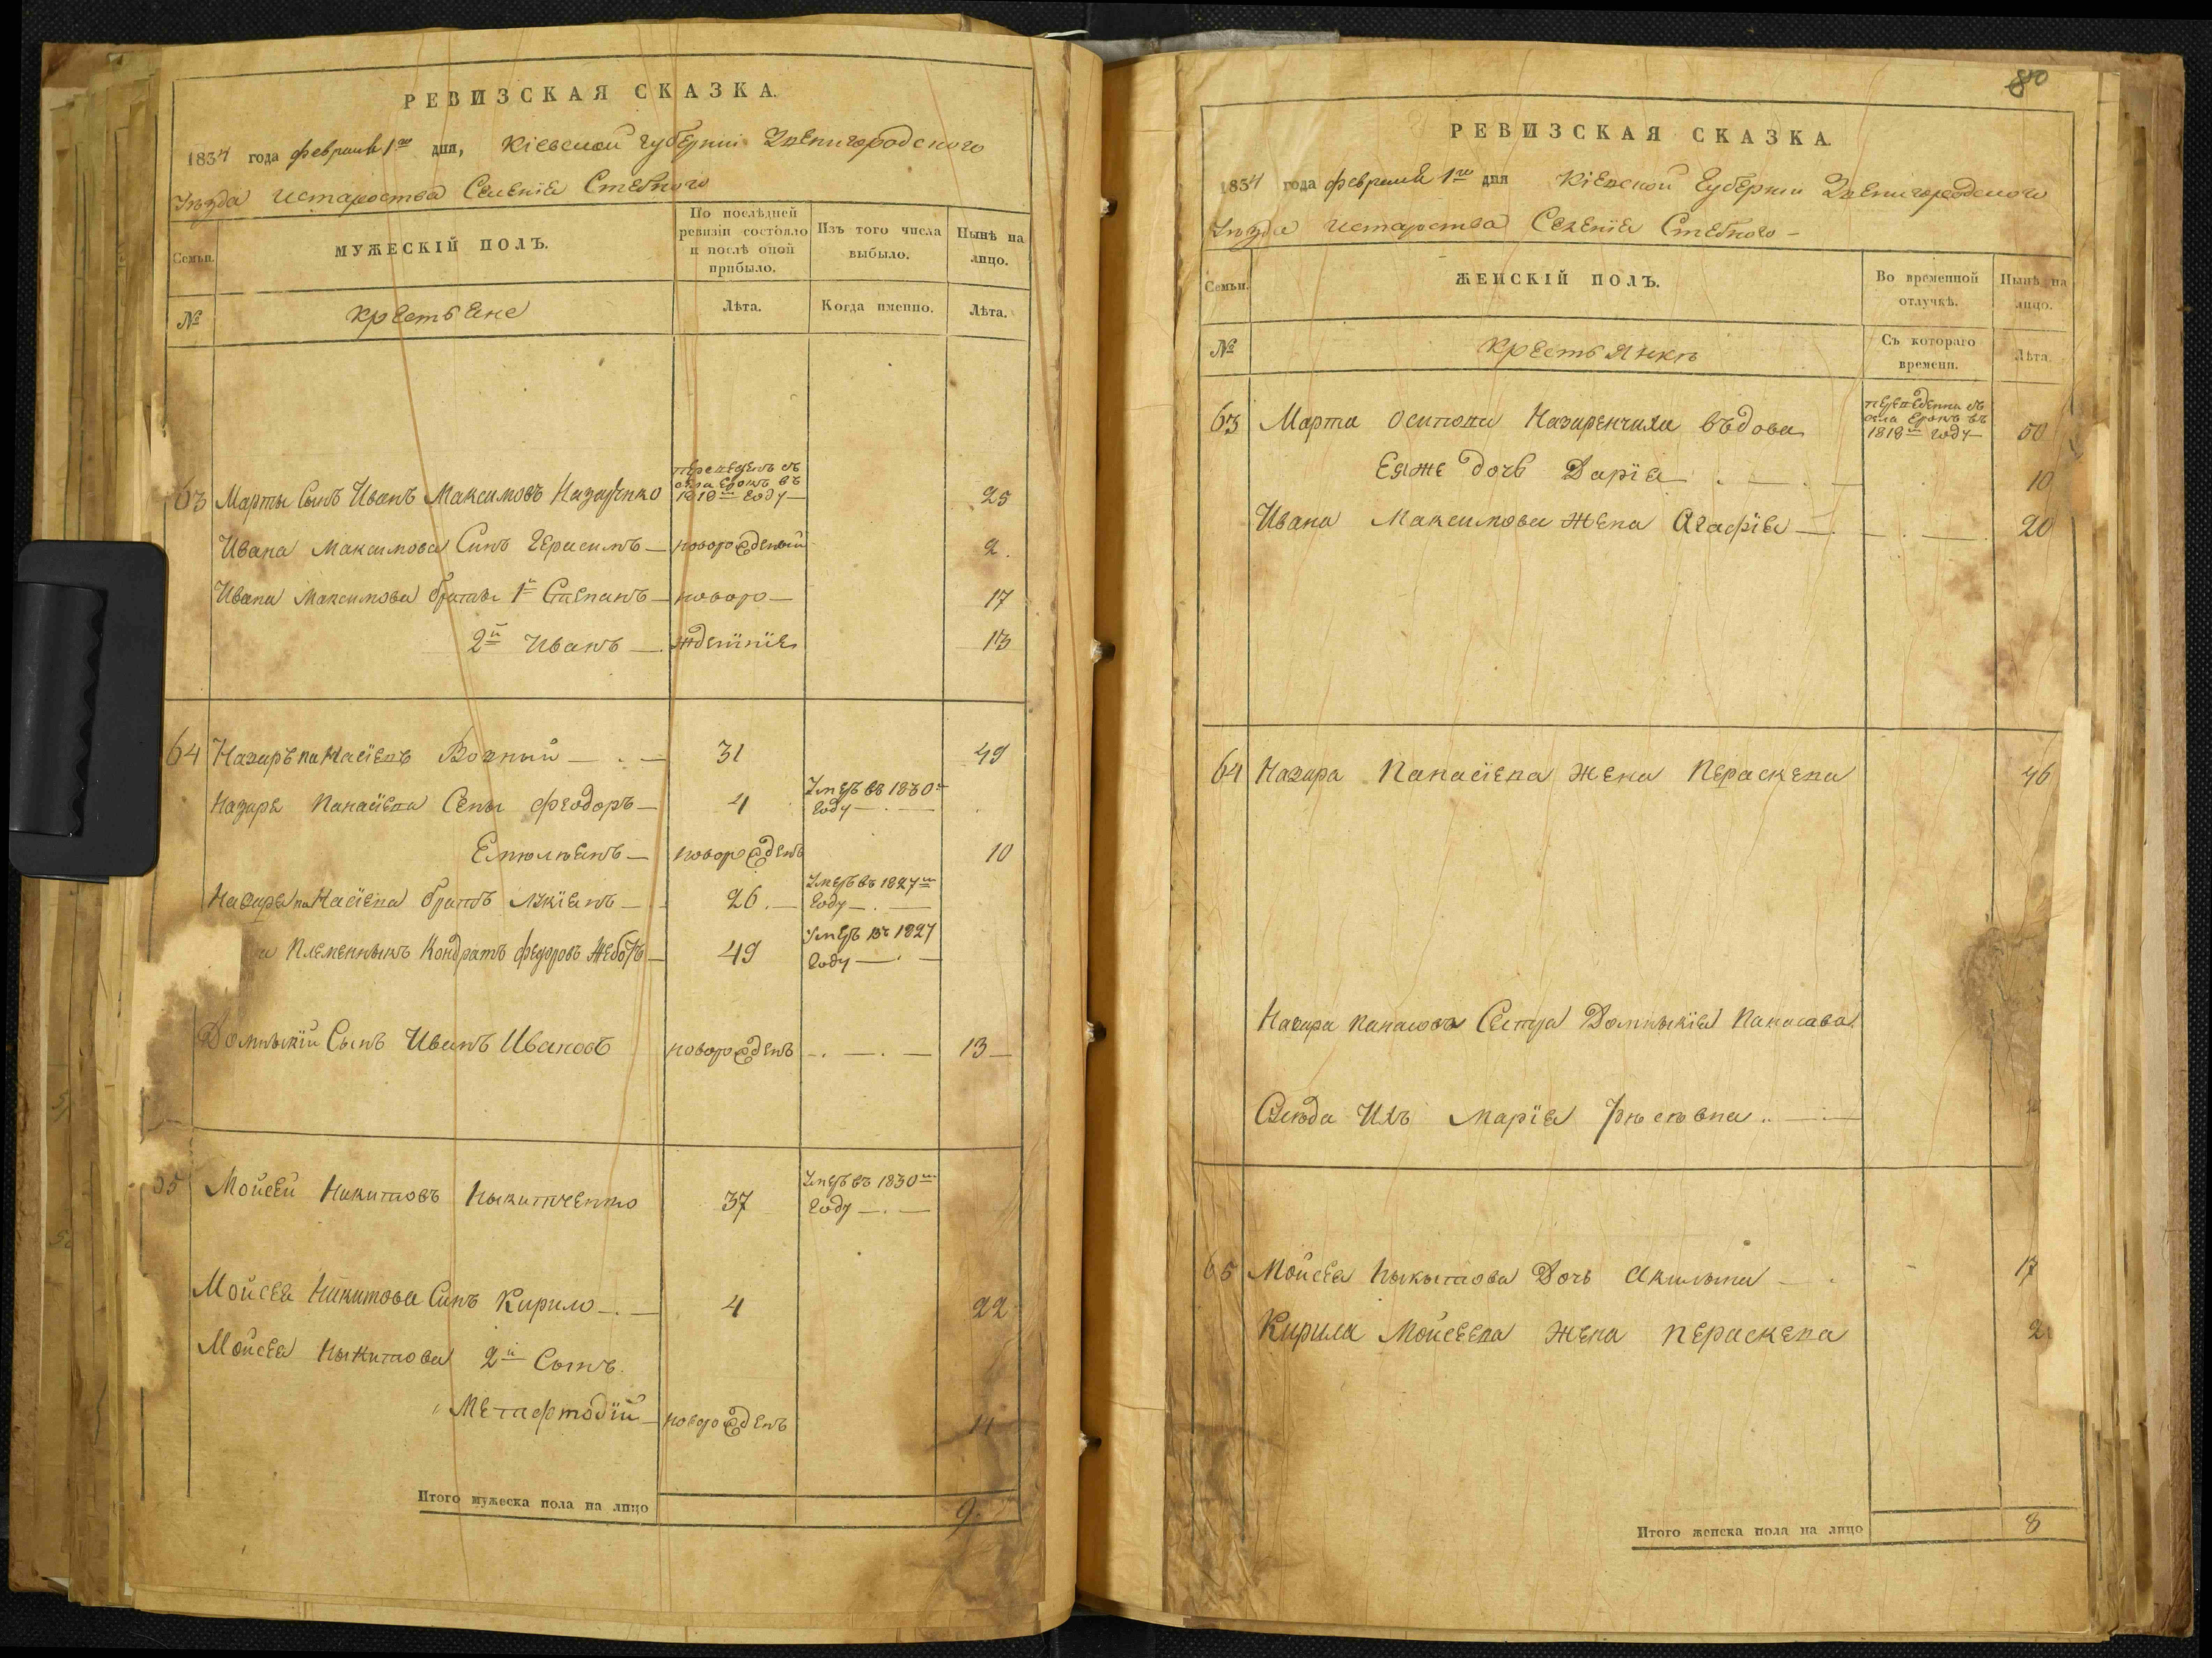 РЕВИЗСКАЯ СКАЗКА.
1834 года февраля 1го дня, Кіевской губерніи Звенигородского
Уезда и староства Селенія Стебного
Семьи.
МУЖЕСКІЙ ПОЛЪ.
По послѣдней ревизіи состояло и послѣ оной прибыло.
Изъ того числа выбыло.
Нынѣ на лицо.
№
крестьяне
Лѣта.
Когда именно.
Лѣта.
переведенъ съ
села въ
63 Марты Сынъ Иванъ Максимовъ Назаренко 1818м году 25
Ивана Максимова Синъ Герасимъ новорожденый 2.
Ивана Максимова братья 1й Степанъ новоро 17
2й Иванъ жденніе 13
64 Назаръ панасіевъ 31 49
Назара Панасіева Сены Феодоръ 4 Умеръ въ 1830м
году
Емельянъ новорожденъ 10
Назара панасіева братъ Лукіанъ 26. Умеръ въ 1827м
году
племенныкъ Кондратъ 49 Умеръ въ 1827
году
Домныкіи Сынъ Иванъ Ивановъ новорожденъ 13
65 Мойсей Никитовъ Ныкитченко 37 Умеръ въ 1830м
году
Мойсея Никитова Синъ Кирило 4 22
Мойсея Ныкитова 2й Сынъ.
новорожденъ 11
Итого мужеска пола на лицо 9.
80
РЕВИЗСКАЯ СКАЗКА.
1834 года февраля 1го дня Кіевской Губерніи Звенигородского
Уезда и староства Селенія Стебного
Семьи.
ЖЕНСКІЙ ПОЛЪ.
Во временной отлучкѣ.
Нынѣ на лицо.
№
крестьянкъ
Съ котораго времени.
Лѣта.
переведенна съ
села въ
63 Марта Осипова Назаренчиха въдова 1818м году 50
Еяже дочь Дарія 10
Ивана Максимова жена Агафія 20
64 Назара Панасіева жена Параскева 46
Назара панасова Сестра Домныкія Панасова
Сусѣда Ихъ Марія
65 Мойсея Ныкытова Дочь Акилына 17
Кирила Мойсеева жена параскева 2
Итого женска пола на лицо 8